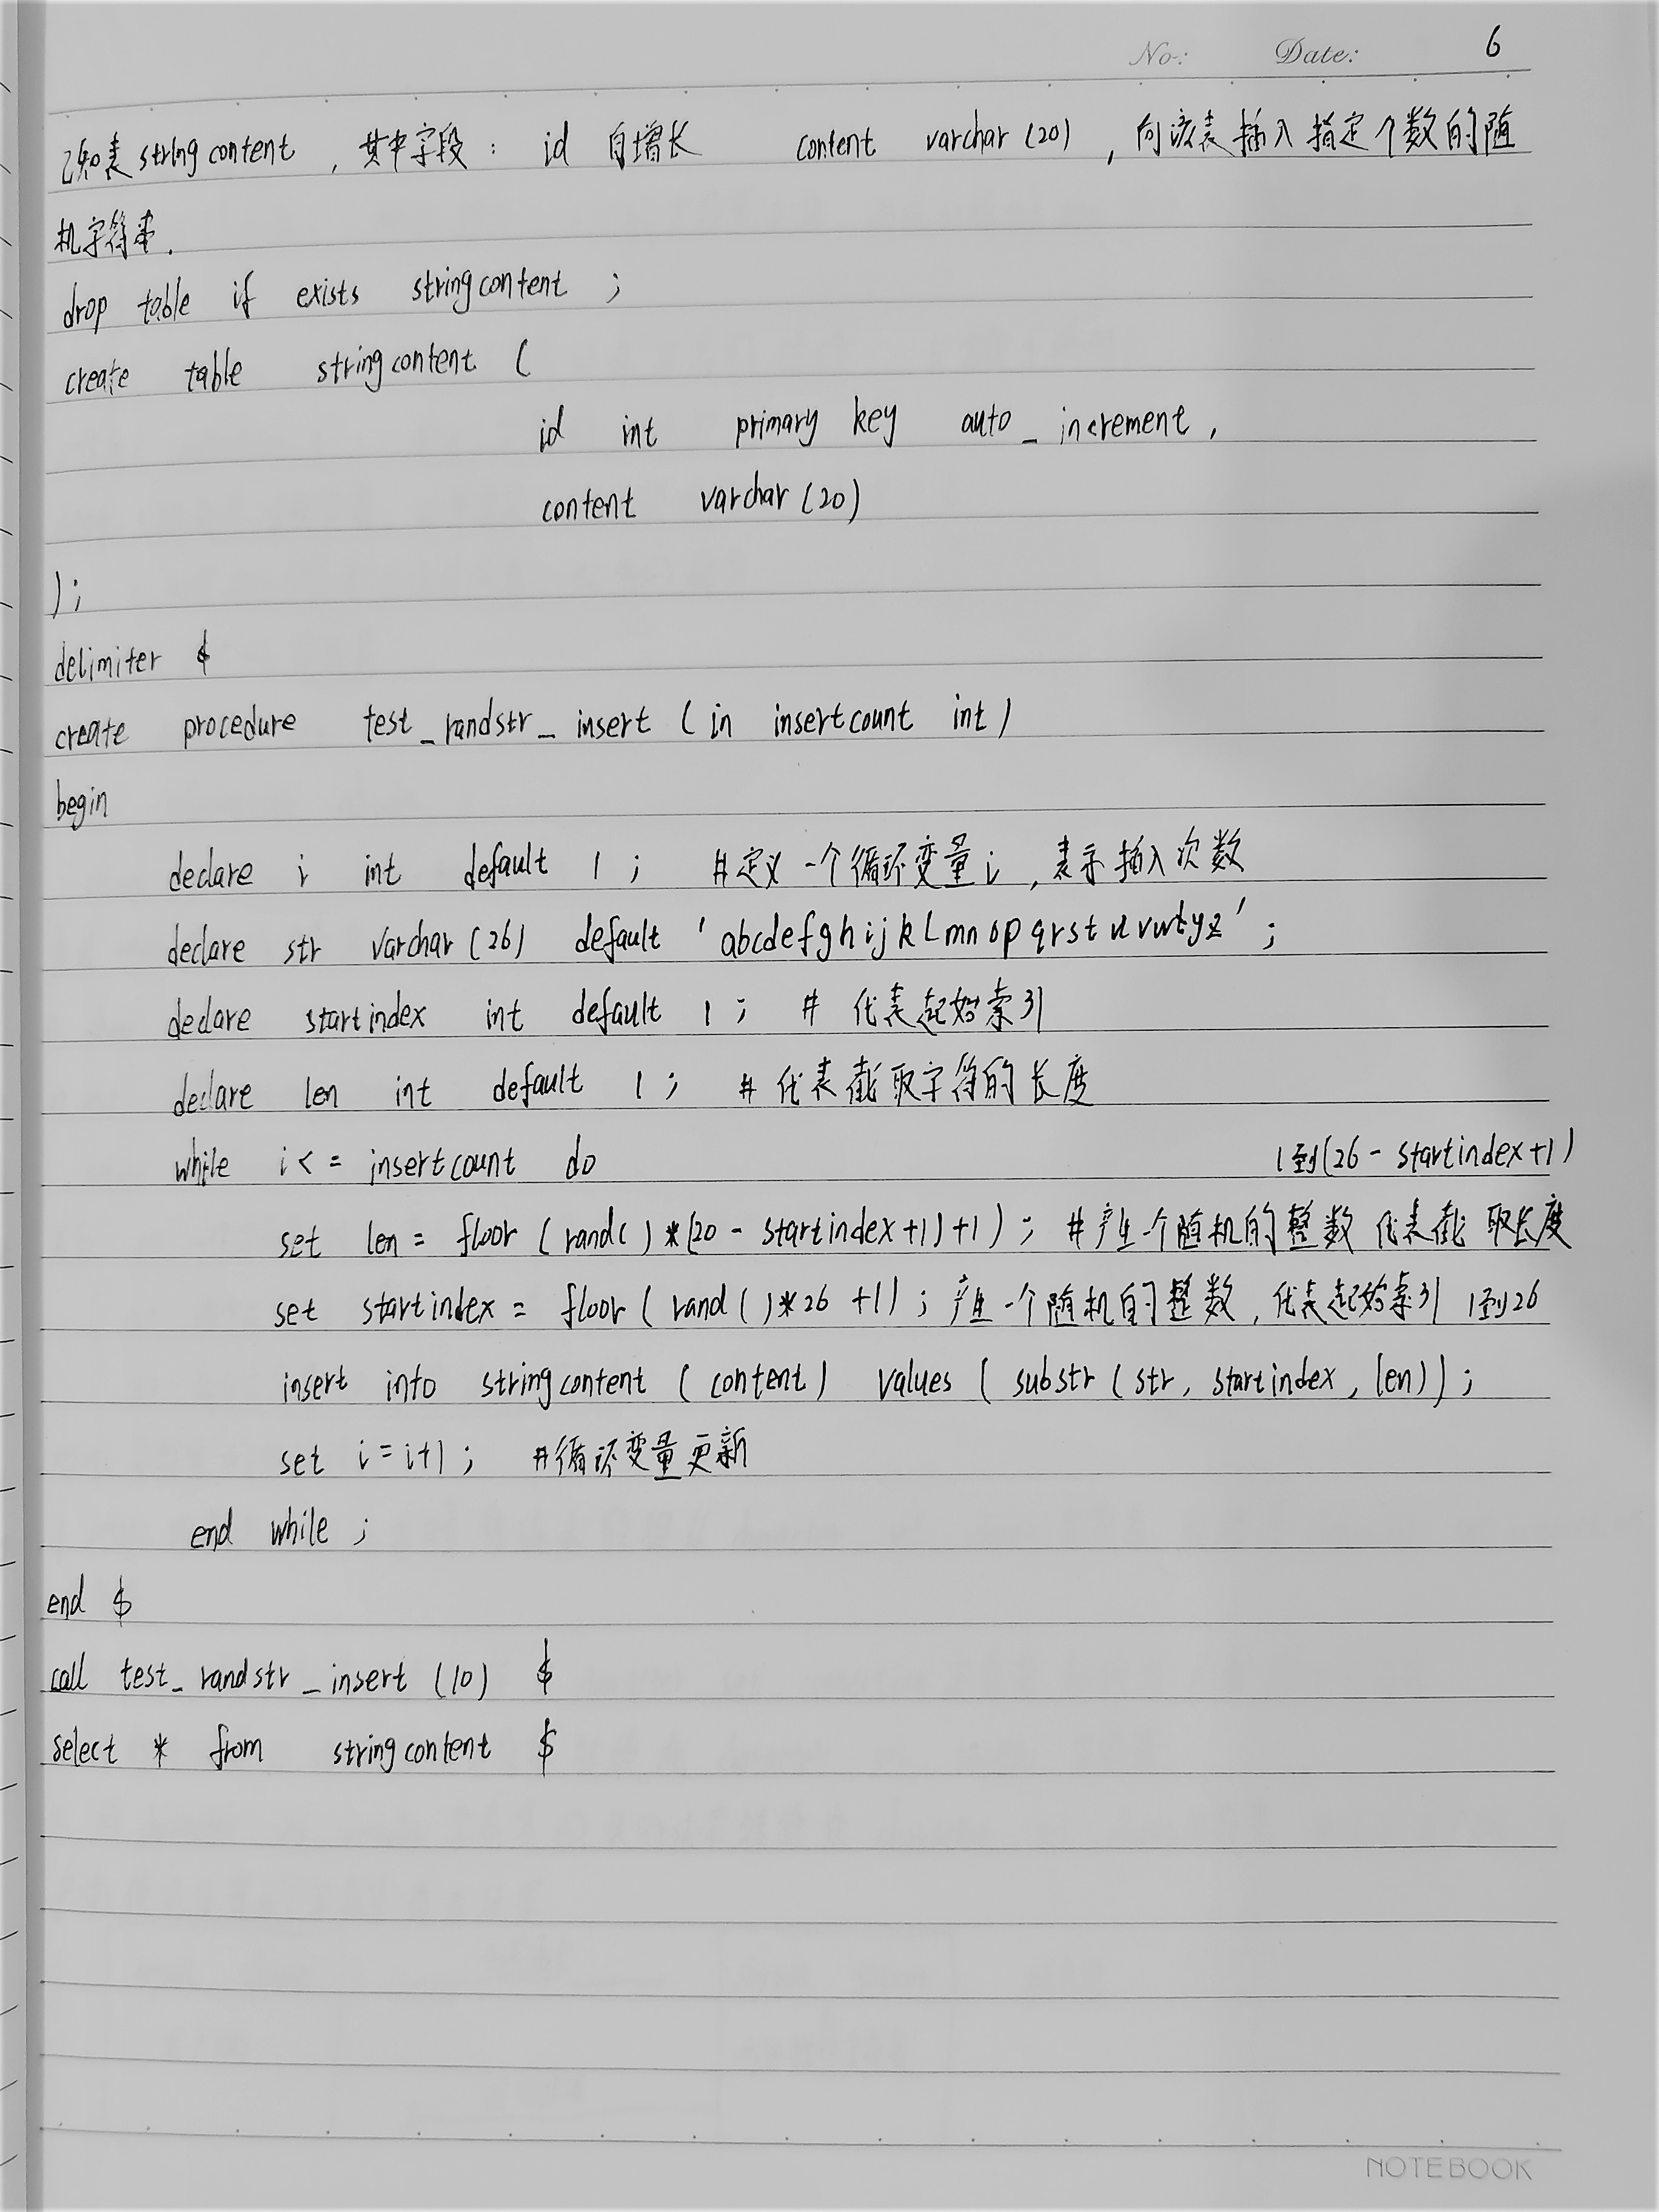 No: Date: 6
已知表 stringcontent , 其中字段 : id 自增长 content varchar (20) , 向该表插入指定个数的随
机字符串.
drop table if exists stringcontent ;
create table stringcontent (
id int primary key auto_increment ,
content varchar (20)
) ;
delimiter $
create procedure test_randstr_insert ( in insertcount int )
begin
declare i int default 1 ; #定义一个循环变量i , 表示插入次数
declare str varchar (26) default 'abcdefghijklmnopqrstuvwxyz' ;
declare startindex int default 1 ; # 代表起始索引
declare len int default 1 ; # 代表截取字符的长度
while i <= insertcount do 1到(26 - startindex+1)
set len = floor ( rand( ) * (20 - startindex +1) +1 ) ; #产生一个随机的整数 代表截取长度
set startindex = floor ( rand ( ) * 26 +1 ) ; 产生一个随机的整数 , 代表起始索引 1到26
insert into stringcontent ( content ) values ( substr ( str , startindex , len ) ) ;
set i = i+1 ; #循环变量更新
end while ;
end $
call test_randstr_insert (10) $
select * from stringcontent $
NOTEBOOK